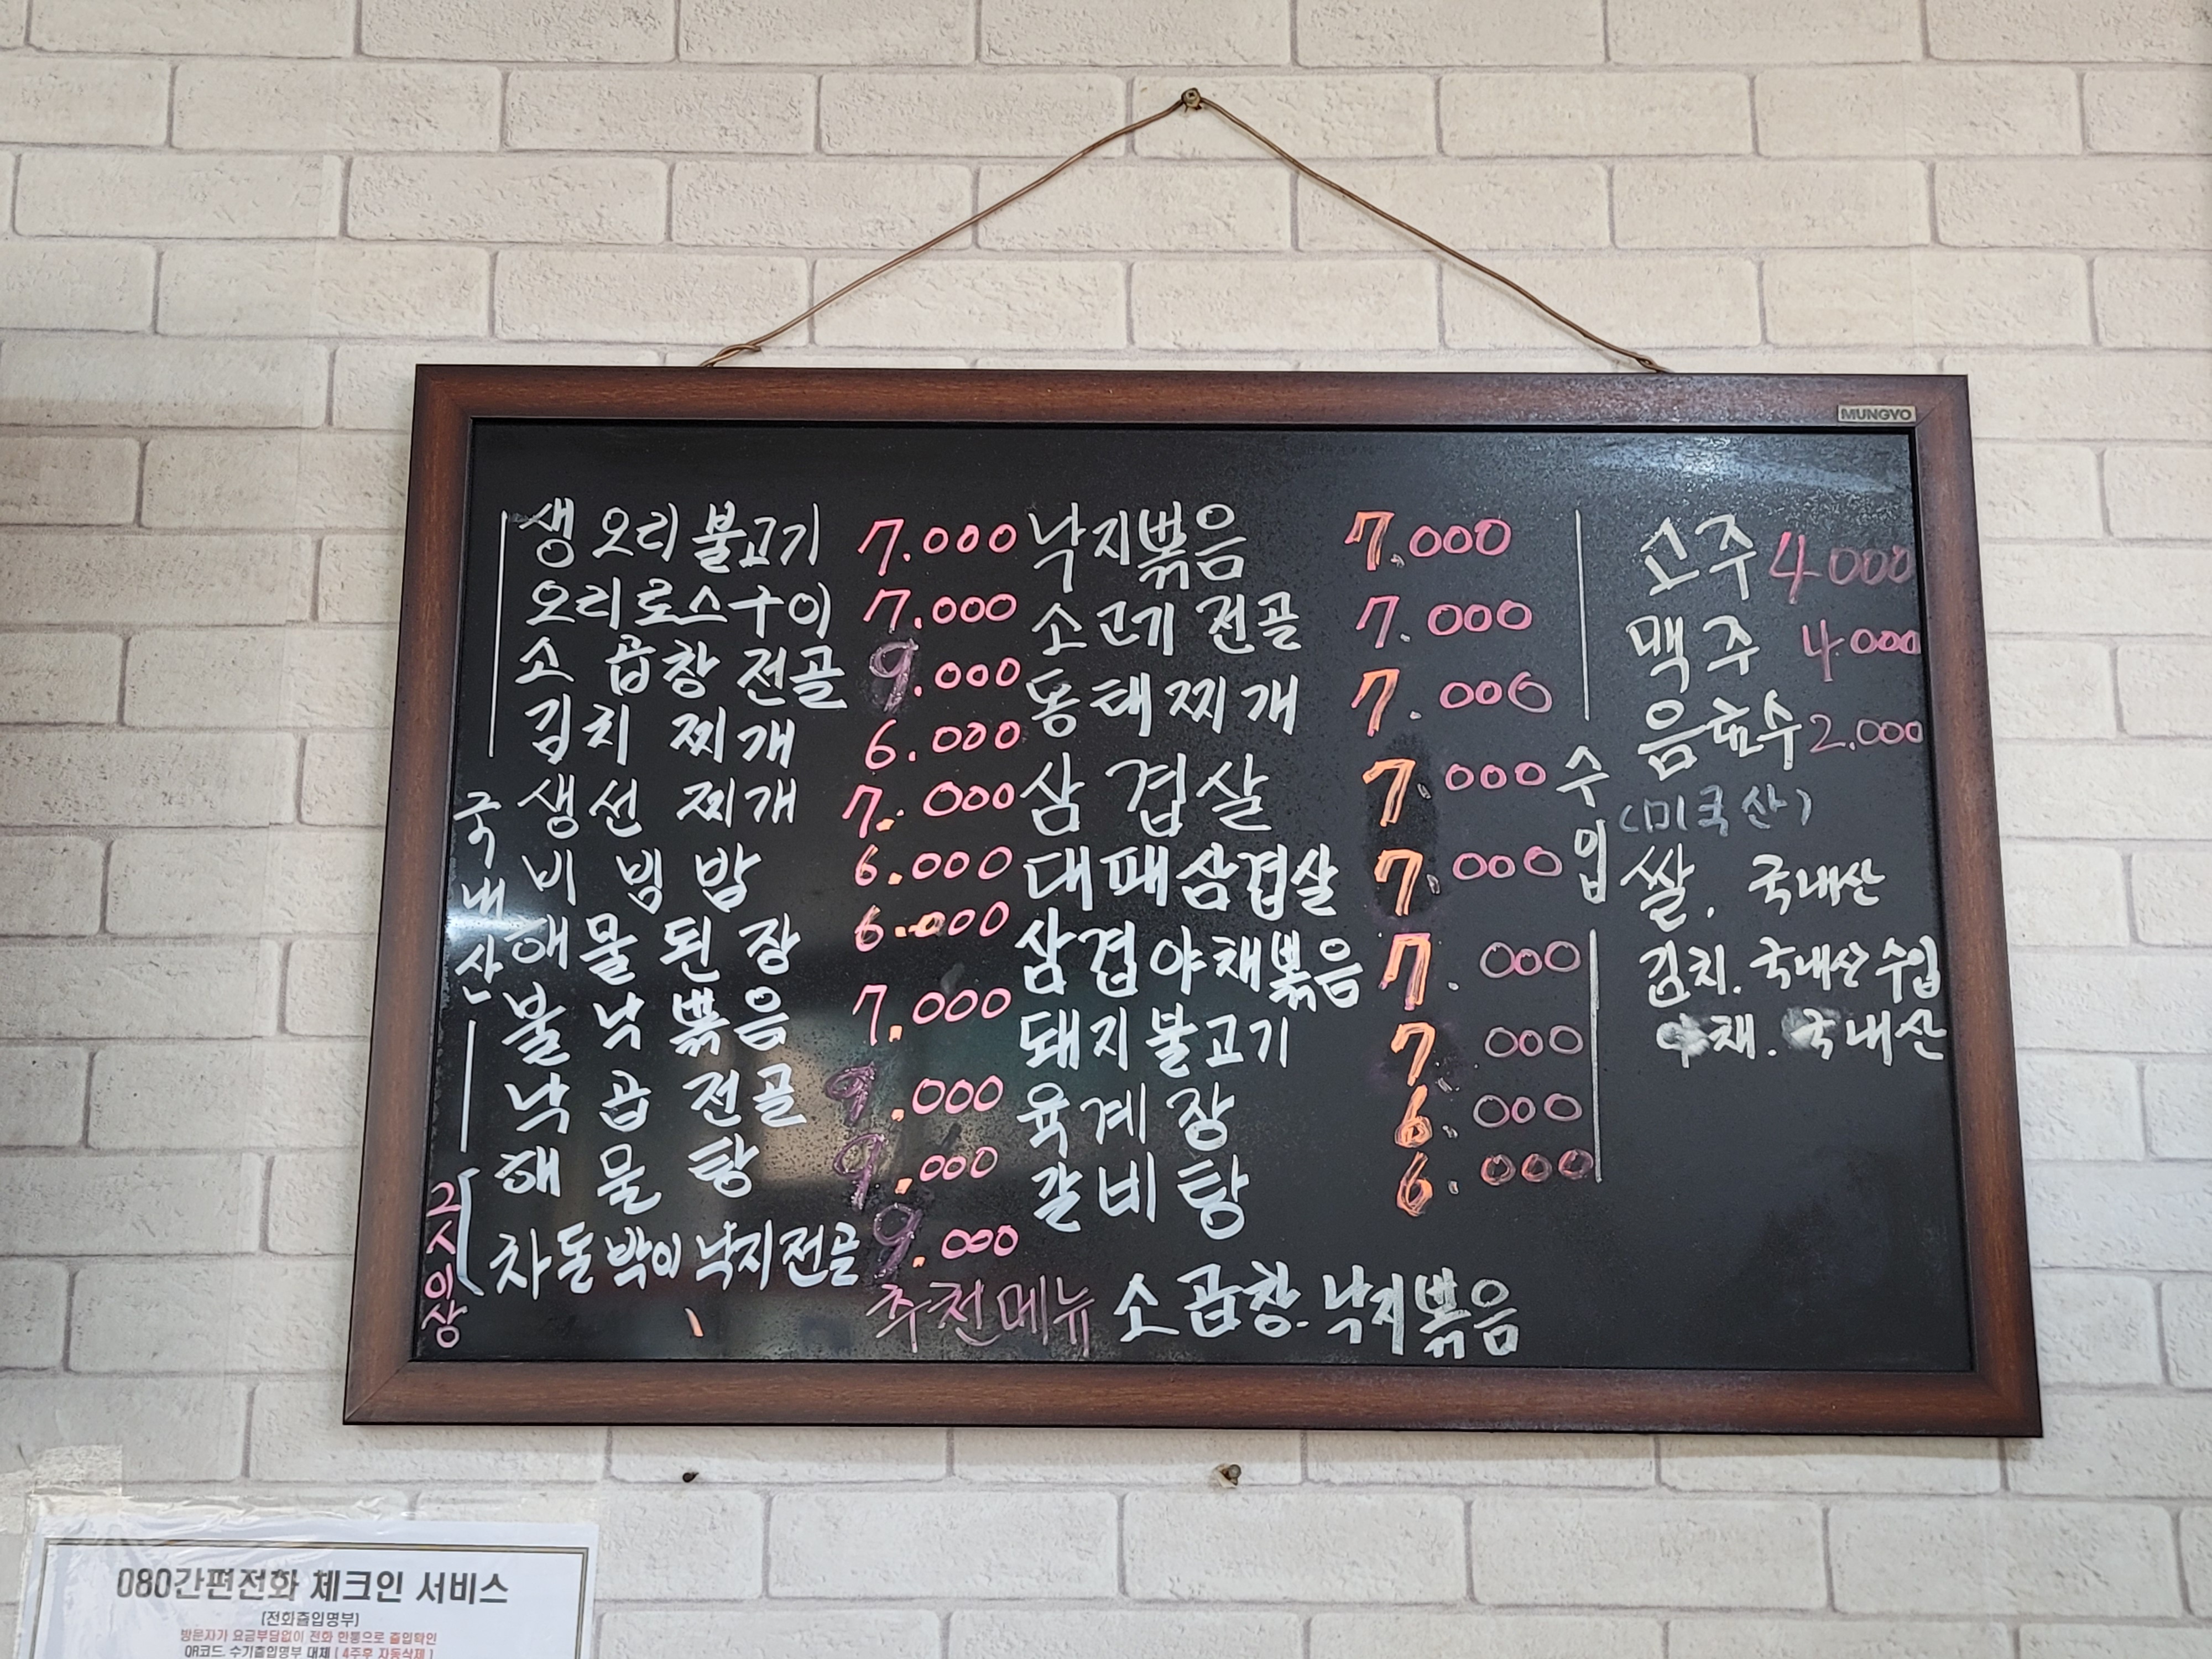 MUNGYO
생오리불고기 7.000
오리로스구이 7.000
소 곱창 전골 9.000
김치 찌개 6.000
생선 찌개 7.000
비빙밥 6.000
해물된장 6.000
불낙볶음 7.000
낙곱전골 9.000
해물탕 9.000
차돌박이 낙지전골 9.000
국내산
2人이상
낙지볶음 7.000
소고기 전골 7.000
동태찌개 7.000
삼겹살 7.000
대패삼겹살 7.000
삼겹야채볶음 7.000
돼지불고기 7.000
육계장 6.000
갈비탕 6.000
수입
(미국산)
소주 4000
맥주 4000
음료수 2.000
쌀. 국내산
김치. 국내산 수입
야채. 국내산
추천메뉴 소곱창. 낙지볶음
080간편전화 체크인 서비스
[전화출입명부]
방문자가 요금부담없이 전화 한통으로 출입확인
QR코드, 수기출입명부 대체 [4주후 자동삭제]